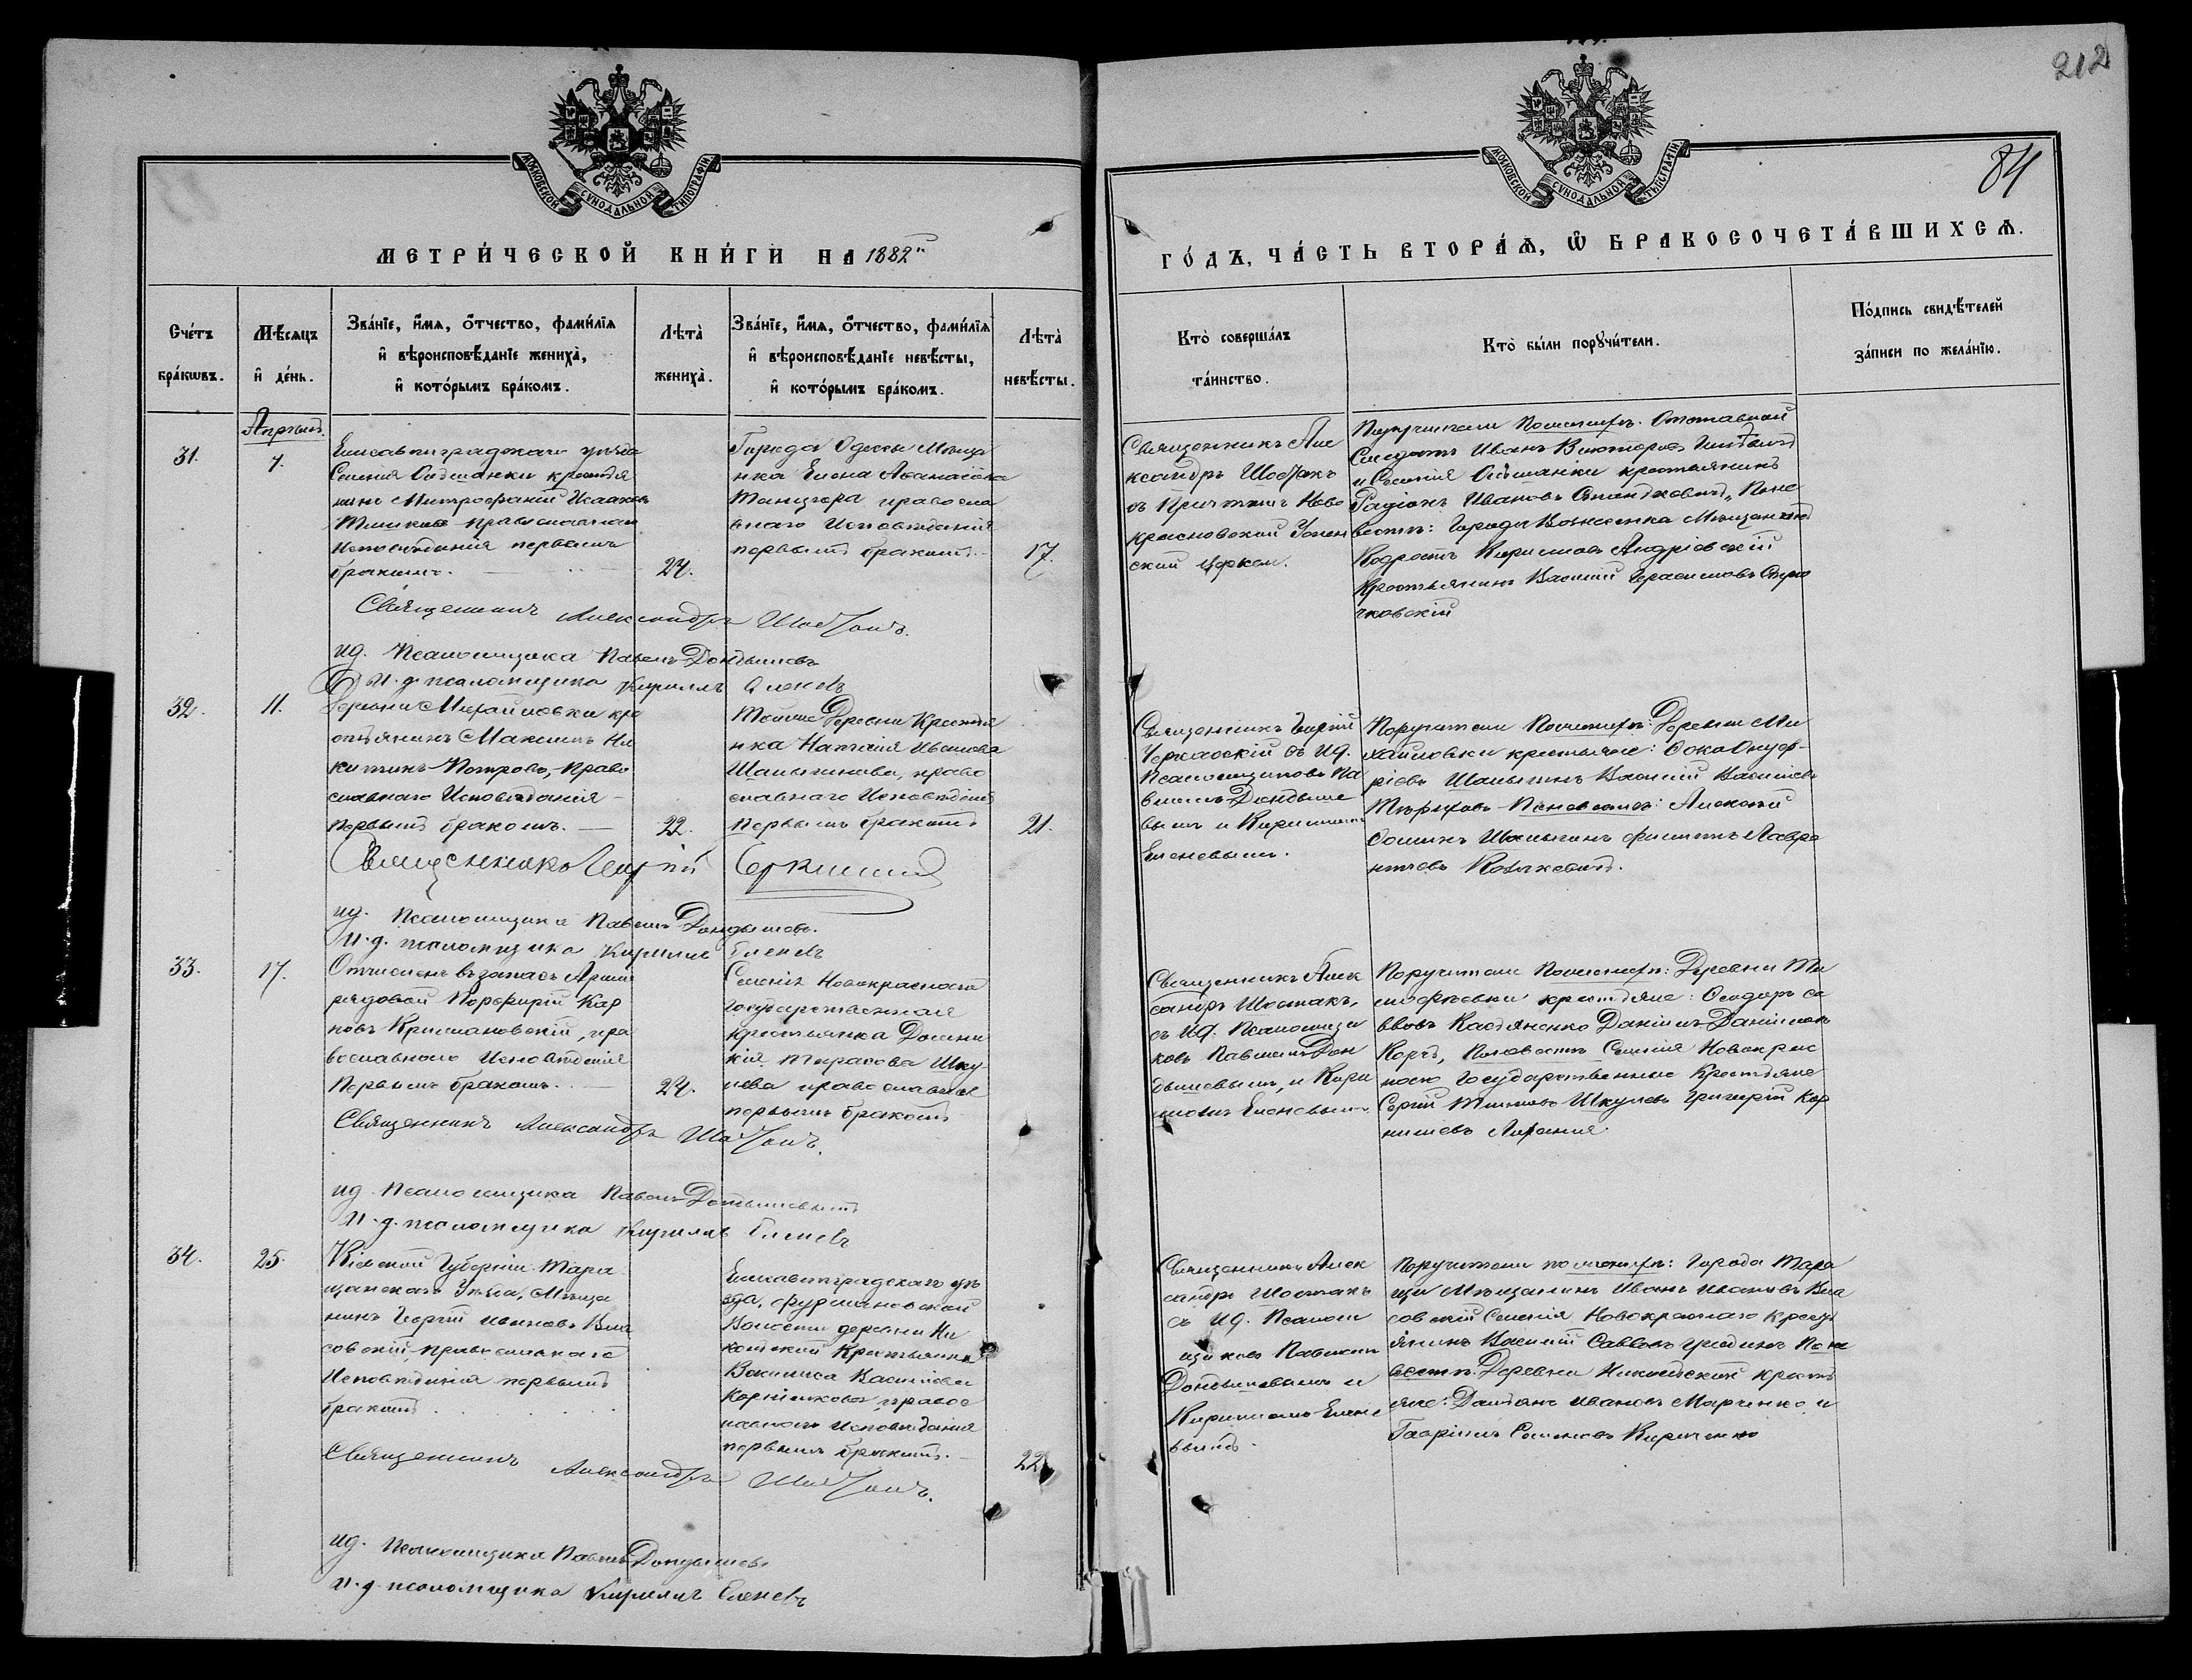 212
84
МОСКОВСКОЙ СѴНОДАЛЬНОЙ ТИПОГРАФІИ
МОСКОВСКОЙ СѴНОДАЛЬНОЙ ТИПОГРАФІИ
МЕТРИ́ЧЕСКОЙ КНИ́ГИ НА 1882
ГО́ДЪ, ЧА́СТЬ ВТОРА́Ѧ, Ѽ БРАКОСОЧЕТА́ВШИХСѦ.
Сче́тъ бра́кѡвъ.
Мѣ́сяцъ и҆ де́нь.
Зва́нїе, и҆́мѧ, ѻ҆́тчество, фами́лїѧ
и҆ вѣроисповѣ́данїе жениха̀,
и҆ кото́рымъ бра́комъ.
Лѣта̀ жениха̀.
Зва́нїе, и҆́мѧ, ѻ҆́тчество, фами́лїѧ
и҆ вѣроисповѣ́данїе невѣ́сты,
и҆ кото́рымъ бра́комъ.
Лѣта̀ невѣ́сты.
Кто̀ соверша́лъ
та́инство.
Кто̀ бы́ли порꙋчи́тели.
По́дпись свидѣ́телей
за́писи по жела́нїю.
31.
7.
Елисаветградскаго уѣзда
Митрофаній Исааковъ
православнаго
Исповѣданія первымъ
бракомъ.
24.
Города Одессы Мѣща
нка Елена
правосла
внаго Исповѣданія
первымъ бракомъ
17.
Священникъ Але
ксандръ Шостакъ
Ново
красновской Успен
ской церкви.
Поручители По женихѣ: Отставной
Иванъ Викторовъ
крестьянинъ
Иванов
вѣстѣ: Города Вознесенка Мѣщанинъ
Андріевскій
Крестьянинъ Василий Герасимовъ
чковскій
Священникъ Александръ Шостакъ.
ид. Псаломщика Павелъ Дондышевъ
И. д. псаломщика Кириллъ Еленевъ
32.
11.
Деревни Михайловки кре
стьянинъ Максимъ Ни
китинъ Петровъ, право
славнаго Исповѣданія
первымъ бракомъ.
22.
Тойже Деревни Крестья
нка Наталія Иванова
право
славнаго Исповѣданія
первымъ бракомъ
21.
Священникъ Георгій
Черкасскій съ ид.
Псаломщиковъ Па
вломъ Дондыше
вымъ и Кирилломъ
Еленевымъ.
Поручители По женихѣ: Деревни Ми
хайловки крестьяне: Онуф-
ріевъ Василій Васильевъ
По невѣстѣ: Алексѣй
Лавре
нтьевъ
Священникъ Георгій
ид. Псаломщика Павелъ Дондышевъ.
И. д. псаломщика Кириллъ Еленевъ
33.
17.
въ запасъ Арміи
рядовой Порфирій Кар
повъ Крижановскій, пра
вославнаго Исповѣданія
первымъ бракомъ.
24.
Селенія Новокраснаго
государственная
крестьянка Домни
кія Тарасова Шку
лева православнаго
первымъ бракомъ
Священникъ Алек
сандръ Шостакъ,
съ ид. Псаломщи
ковъ Павломъ Дон
дышевымъ, и Кири
лломъ Еленевымъ.
Поручители По женихѣ: Деревни Ти
мофеевки крестьяне: Ѳеодоръ Са
ввовъ Касьяненко Даніилъ Даніиловъ
Коржъ, По невѣстѣ Селенія Новокрас
наго Государственные Крестьяне
Сергій Шкулевъ Григорій Кор
ниліевъ
Священникъ Александръ Шостакъ.
ид. Псаломщика Павелъ Дондышевъ
И. д. псаломщика Кириллъ Еленевъ
34.
25.
Кіевской Губерніи Тара
щанскаго Уѣзда, Мѣща
нинъ Георгій Ивановъ Вла
совскій, православнаго
Исповѣданія первымъ
бракомъ.
Елисаветградскаго уѣ
зда,
Волости деревни Ни
кольской Крестьянка
Василисса Васильева
Корніенкова, правос
лавнаго Исповѣданія
первымъ бракомъ.
22
Священникъ Алек
сандръ Шостакъ
съ ид. Псалом
щиковъ Павломъ
Дондышевымъ и
Кирилломъ Елене
вымъ.
Поручители по женихѣ: Города Тара
щи Мѣщанинъ Иванъ Ивановъ Вла
совскій Селенія Новокраснаго Кресть
янинъ Василій Саввовъ По не
вѣстѣ: Деревни Никольской кресть
яне: Ивановъ Марченко и
Гавріилъ Семеновъ Кириченко
Священникъ Александръ Шостакъ.
ид. Псаломщика Павелъ Дондышевъ
И. д. псаломщика Кириллъ Еленевъ